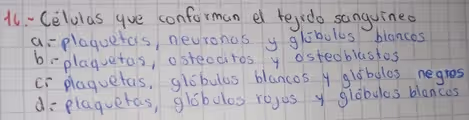 16.- Células que conforman el tejido sanguíneo
a.- plaquetas, neuronas y glóbulos blancos
b.- plaquetas, osteocitos y osteoblastos
c.- plaquetas, glóbulos blancos y glóbulos negros
d.- plaquetas, glóbulos rojos y glóbulos blancos